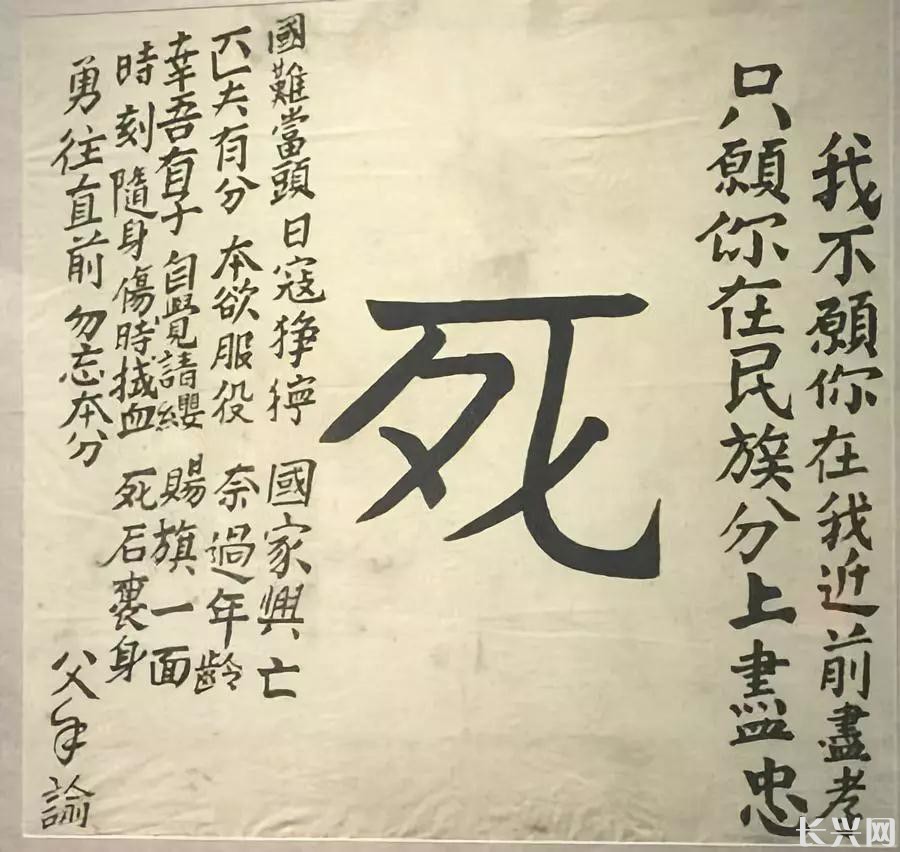 我不願你在我近前盡孝
只願你在民族分上盡忠
死
國難當頭 日寇猙獰 國家興亡
匹夫有分 本欲服役 奈過年齡
幸吾有子 自覺請纓 賜旗一面
時刻隨身 傷時拭血 死后裹身
勇往直前 勿忘本分
父手諭
长兴网